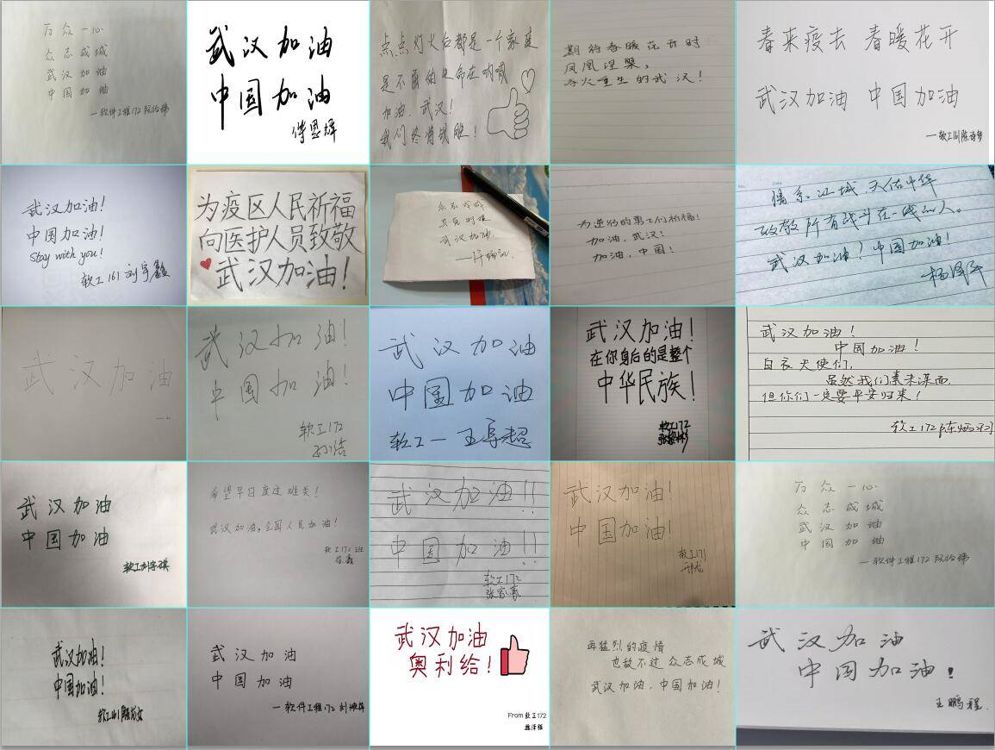 万众一心
众志成城
武汉加油
中国加油
——软件工程172
武汉加油
中国加油
点点灯火后都是一个家庭
加油,武汉!
我们终将战胜!
期待春暖花开时
凤凰涅槃,
浴火重生的武汉!
春来疫去 春暖花开
武汉加油 中国加油
武汉加油!
中国加油!
Stay with you!
软工161 刘宇鑫
为疫区人民祈福
向医护人员致敬
武汉加油!
众志成城
共克时艰
武汉加油
为逆行的勇士们祈福!
加油,武汉!
加油,中国!
情系江城 天佑中华
致敬所有战斗在一线的人。
武汉加油!中国加油!
武汉加油
武汉加油!
中国加油!
软工172
武汉加油
中国加油
软工一 王
武汉加油!
在你身后的是整个
中华民族!
软工172
武汉加油!
中国加油!
白衣天使们,
虽然我们素未谋面
但你们一定要平安归来!
软工172
武汉加油
中国加油
希望早日度过难关!
武汉加油,全国人民加油!
软工172班
武汉加油!!
中国加油!!
软工172
张家豪
武汉加油!
中国加油!
软工171
万众一心
众志成城
武汉加油
中国加油
——软件工程172
武汉加油!
中国加油!
武汉加油
中国加油
——软件工程172
武汉加油
奥利给!
From 软工172
再猛烈的疫情
也敌不过众志成城
武汉加油,中国加油!
武汉加油
中国加油!
王鹏程